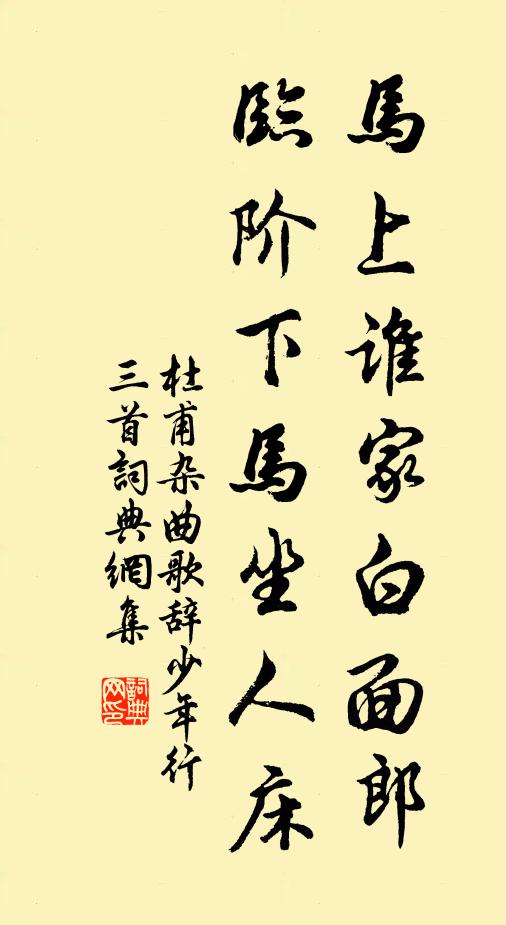 馬上誰家白面郎
臨阶下馬坐人床
杜甫杂曲歌辞少年行
三首詞典網集
詞典
网印